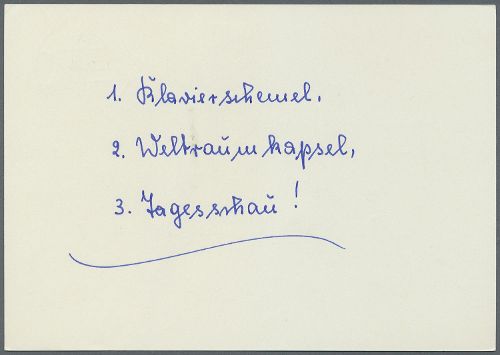 1. Klavierschemel.
2. Weltraumkapsel,
3. Tagesschau!